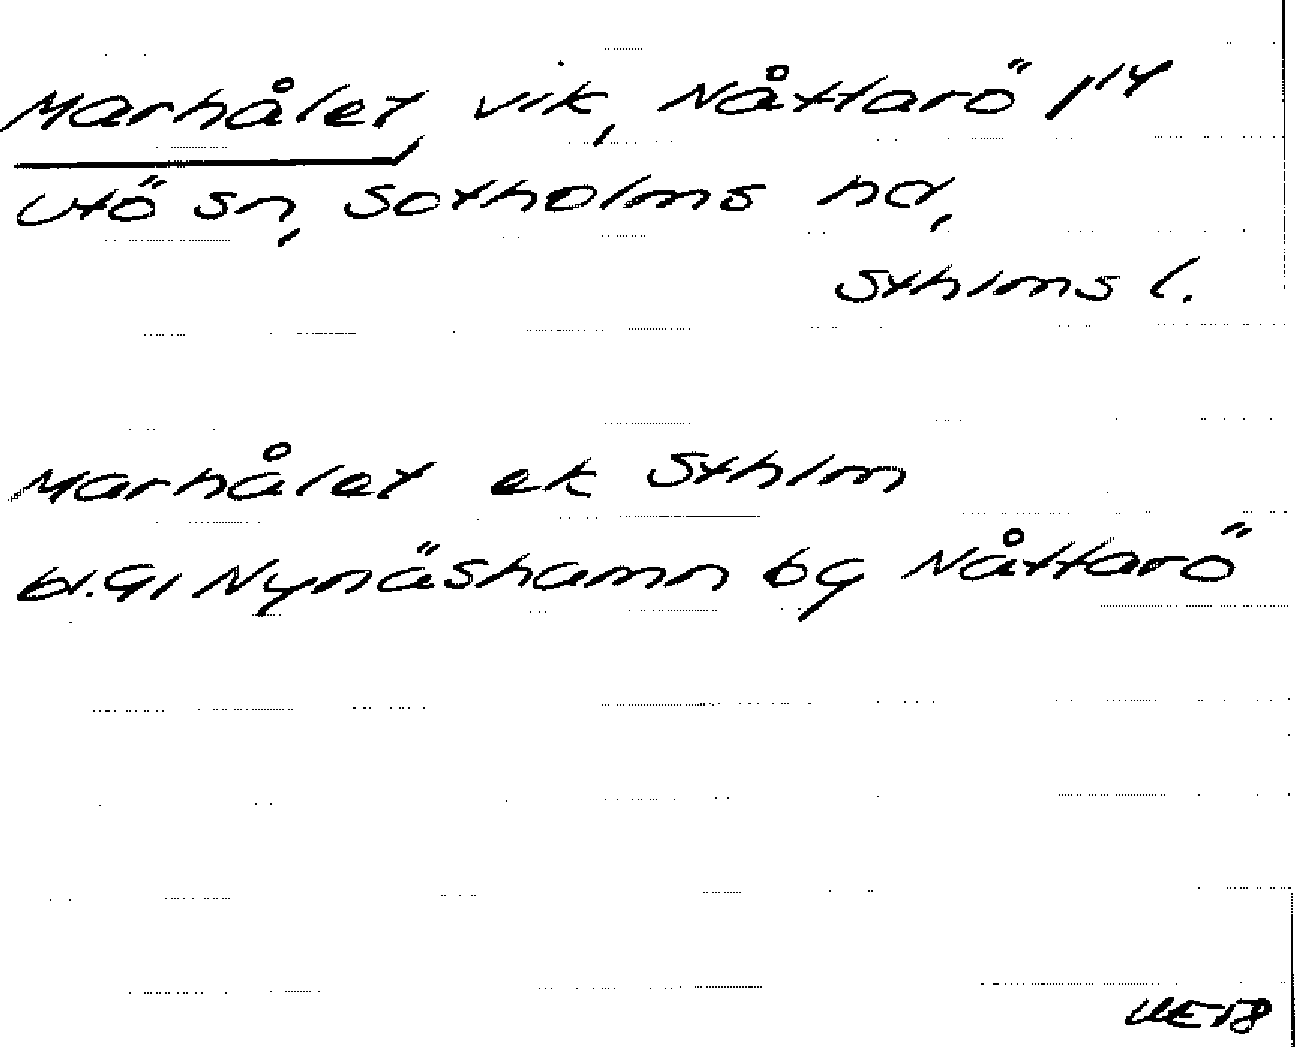 Marhålet, vik, Nåttarö 1¹⁴
Utö sn, Sotholms hd,
Sthlms l.
Marhålet ek Sthlm
bl. 91 Nynäshamn bg Nåttarö